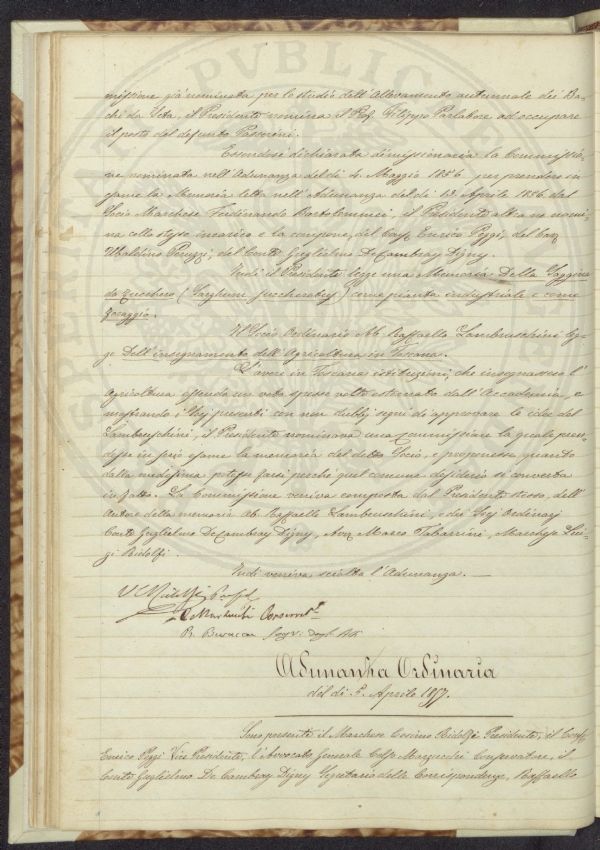 missione già nominata per lo studio dell'Allevamento autunnale dei Ba-
chi da Seta, il Presidente nomina il Prof. Filippo Parlatore ad occupare
il posto del defunto Passerini.
Essendosi dichiarata dimissionaria la Commissio-
ne nominata nell'Adunanza del dì 4. Maggio 1856 per prendere in
esame la Memoria letta nell'Adunanza del dì 13 Aprile 1856 dal
Socio Marchese Ferdinando Bartolommei, il Presidente altra ne nomi-
na collo stesso incarico e la compone, del Cav. Enrico Poggi, del Cav.
Ubaldino Peruzzi, del Conte Guglielmo De Cambray Digny.
Indi il Presidente legge una Memoria Della Saggina
da Zucchero (Sorghum saccharatus) come pianta industriale e come
foraggio.
Il Socio Ordinario Ab. Raffaello Lambruschini leg-
ge Dell'insegnamento dell'Agricoltura in Toscana.
L'avere in Toscana istituzioni, che insegnassero l'
Agricoltura essendo un voto spesso volte esternato dall'Accademia, e
mostrando i Socj presenti con non dubbj segni di approvare le idee del
Lambruschini, il Presidente nominava una Commissione la quale pren-
desse in serio esame la memoria del detto Socio, e proponesse quanto
dalla medesima potesse farsi perchè quel comune desiderio si converta
in fatto. La Commissione veniva composta dal Presidente stesso, dell'
Autore della memoria Ab. Raffaello Lambruschini, e dei Socj Ordinarj
Conte Guglielmo De Cambray Digny, Avv. Marco Tabarrini, Marchese Lui-
gi Ridolfi.
Indi veniva sciolta l'Adunanza. —
C. Ridolfi
Adunanza Ordinaria
del dì 5. Aprile 1857.
Sono presenti il Marchese Cosimo Ridolfi Presidente, il Cav.
Enrico Poggi Vice Presidente, l'Avvocato Generale Marzucchi Conservatore, il
Conte Guglielmo De Cambray Digny Segretario delle Corrispondenze, Raffaello